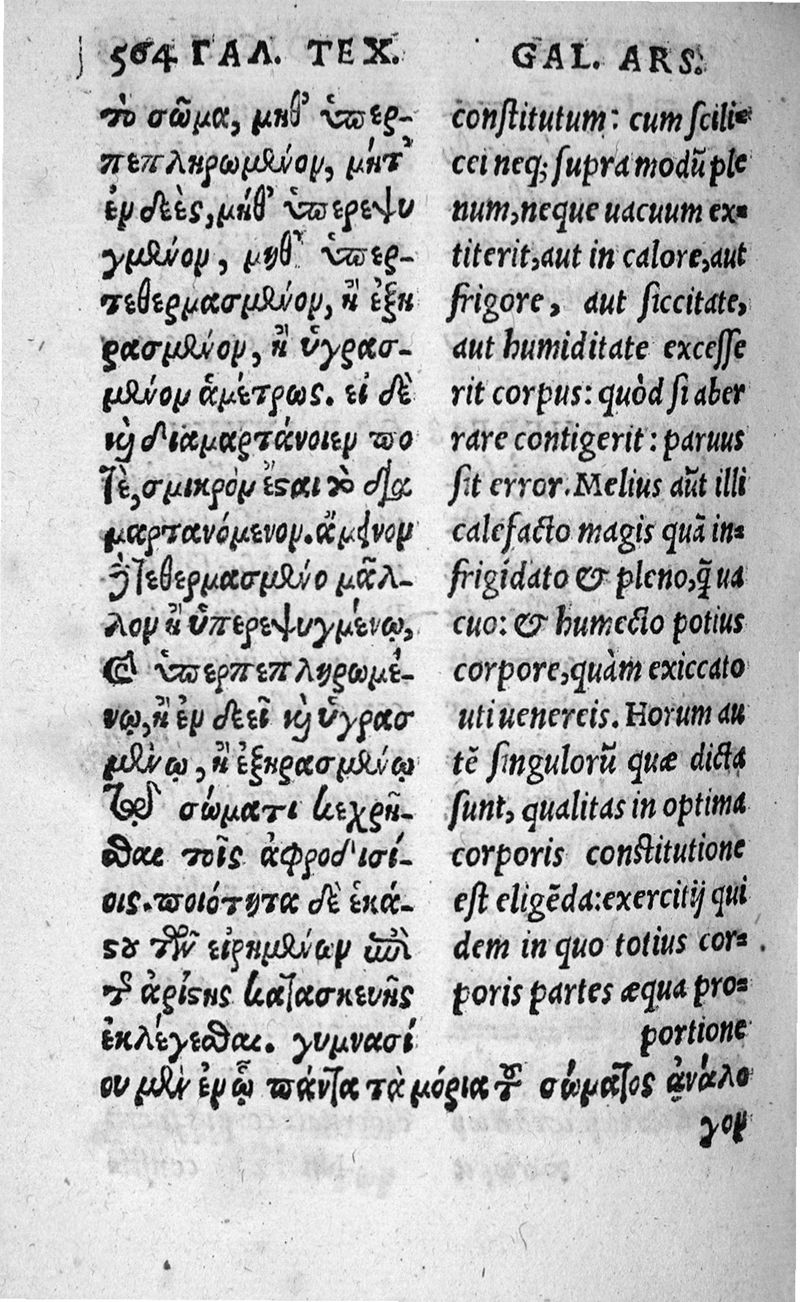 564 ΓΑΛ. ΤΕΧ.
τὸ σῶμα, μηθ' ὑπερ-
πεπληρωμένον, μήτ'
ἐνδεὲς, μήθ' ὑπερεψυ
γμένον, μηθ' ὑπερ-
τεθερμασμένον, ἢ ἐξη
ρασμένον, ἢ ὑγρασ-
μένον ἀμέτρως. εἰ δὲ
καὶ διαμαρτάνοιεν πο
τε, σμικρὸν ἔσται τὸ δια
μαρτανόμενον. ἄμεινον
δὲ τεθερμασμένῳ μᾶλ-
λον ἢ ὑπερεψυγμένῳ,
καὶ ὑπερπεπληρωμέ-
νῳ, ἢ ἐνδεεῖ καὶ ὑγρασ
μένῳ, ἢ ἐξηρασμένῳ
τῷ σώματι κεχρῆ-
σθαι τοῖς ἀφροδισί-
οις. ποιότητα δὲ ἑκά-
στου τῶν εἰρημένων ἐπὶ
τῆς ἀρίστης κατασκευῆς
ἐκλέγεσθαι. γυμνασί
ου μὲν ἐν ᾧ πάντα τὰ μόρια τοῦ σώματος ἀνάλο
γον
GAL. ARS.
constitutum: cum scili-
cei neq; supra modũ ple
num, neque uacuum ex-
titerit, aut in calore, aut
frigore, aut siccitate,
aut humiditate excesse
rit corpus: quòd si aber
rare contigerit: paruus
sit error. Melius aũt illi
calefacto magis quã in-
frigidato & pleno, q̃ ua
cuo: & humecto potius
corpore, quàm exiccato
uti uenereis. Horum au
tẽ singulorũ quæ dicta
sunt, qualitas in optima
corporis constitutione
est eligẽda: exercitij qui
dem in quo totius cor-
poris partes æqua pro-
portione